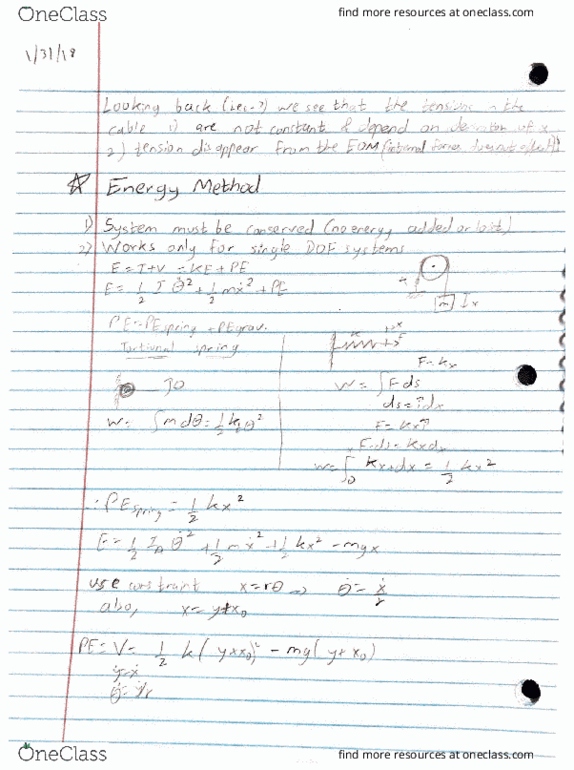 OneClass
find more resources at oneclass.com
1/31/18
Looking back (lec-7) we see that the tensions in the
cable 1) are not constant & depend on deviation of x
2) tension disappear from the EOM (internal forces does not affect)
☆ Energy Method
1) System must be conserved (no energy added or lost)
2) Works only for single DOF systems
E = T+V = KE + PE
E = 1/2 J θ̇² + 1/2 mẋ² + PE
m
Ix
PE = PEspring + PEgrav.
Tortional spring
F=kx
JO
W = ∫Fds
ds = îdx
W = ∫mdθ = 1/2 kθ²
F = kxî
F.ds = kxdx
W = ∫₀ kx dx = 1/2 kx²
∴ PEspring = 1/2 kx²
E = 1/2 I₀ θ̇² + 1/2 mẋ² + 1/2 kx² - mgx
use constraint x=rθ → θ̇ = ẋ/r
also, x = y+x₀
PE = V = 1/2 k(y+x₀)² - mg(y+x₀)
ẏ=ẋ
θ̇= ẏ/r
OneClass
find more resources at oneclass.com